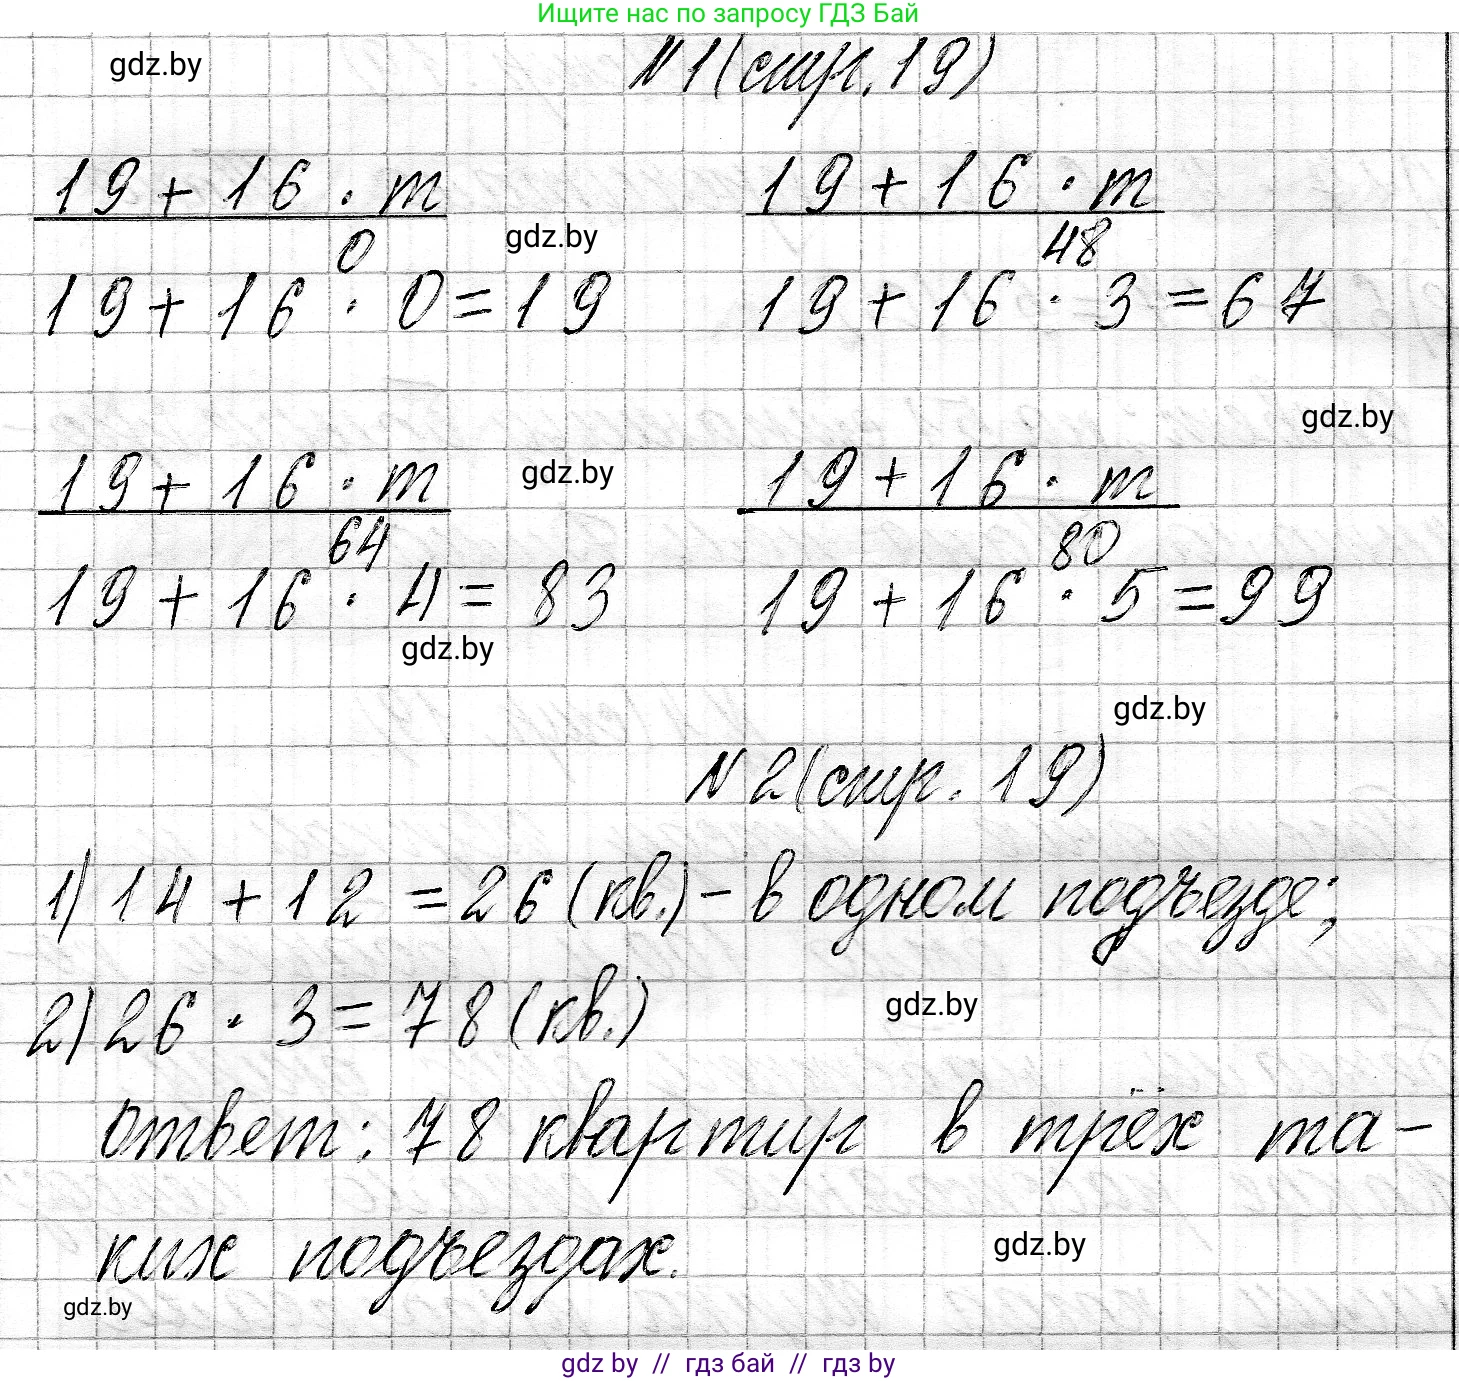 Ищите нас по запросу ГДЗ Бай
gdz.by
№1 (стр. 19)
19 + 16 · m
19 + 16 · m
0
gdz.by
48
19 + 16 · 0 = 19
19 + 16 · 3 = 67
gdz.by
19 + 16 · m
gdz.by
19 + 16 · m
64
80
19 + 16 · 4 = 83
19 + 16 · 5 = 99
gdz.by
gdz.by
№2 (стр. 19)
1) 14 + 12 = 26 (кв.) – в одном подъезде;
2) 26 · 3 = 78 (кв.)
gdz.by
Ответ: 78 квартир в трёх та-
ких подъездах.
gdz.by
gdz.by
gdz by // гдз бай // гдз by